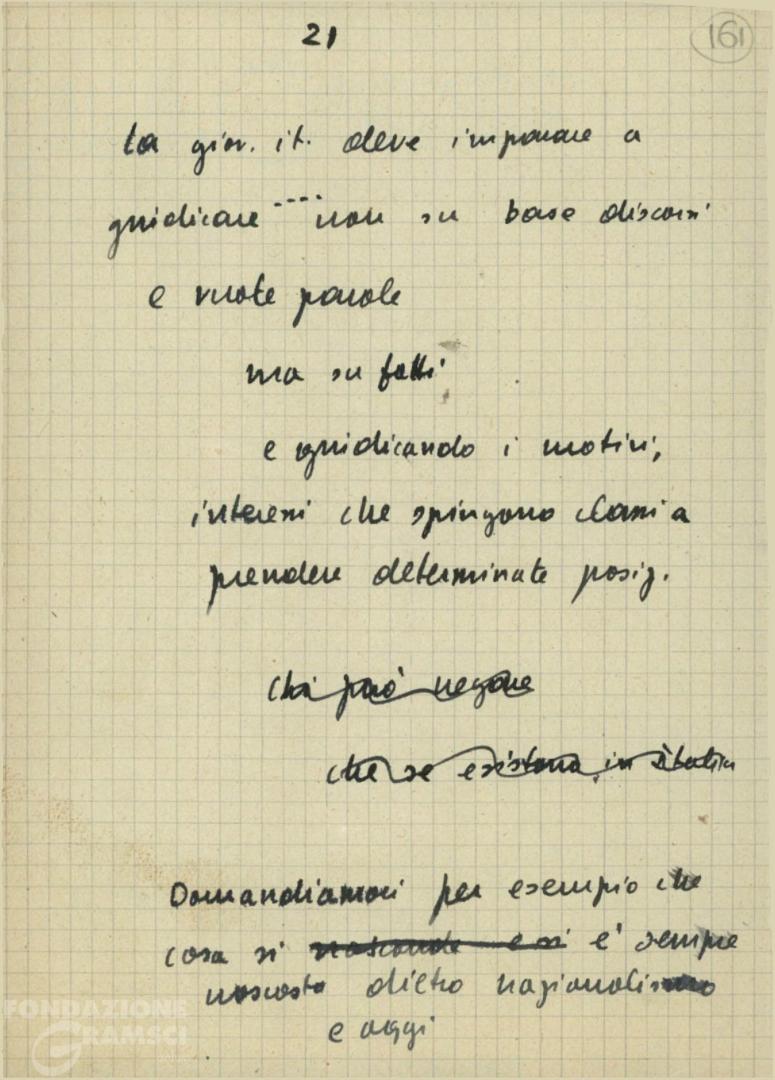 21
161
la giov. it. deve imparare a
giudicare .... non su base discorsi
e vuote parole
ma su fatti
e giudicando i motivi,
interessi che spingono classi a
prendere determinate posiz.
chi può negare
che se esistono in Italia
Domandiamoci per esempio che
cosa si nasconde e si è sempre
nascosto dietro nazionalismo
e oggi
FONDAZIONE
GRAMSCI